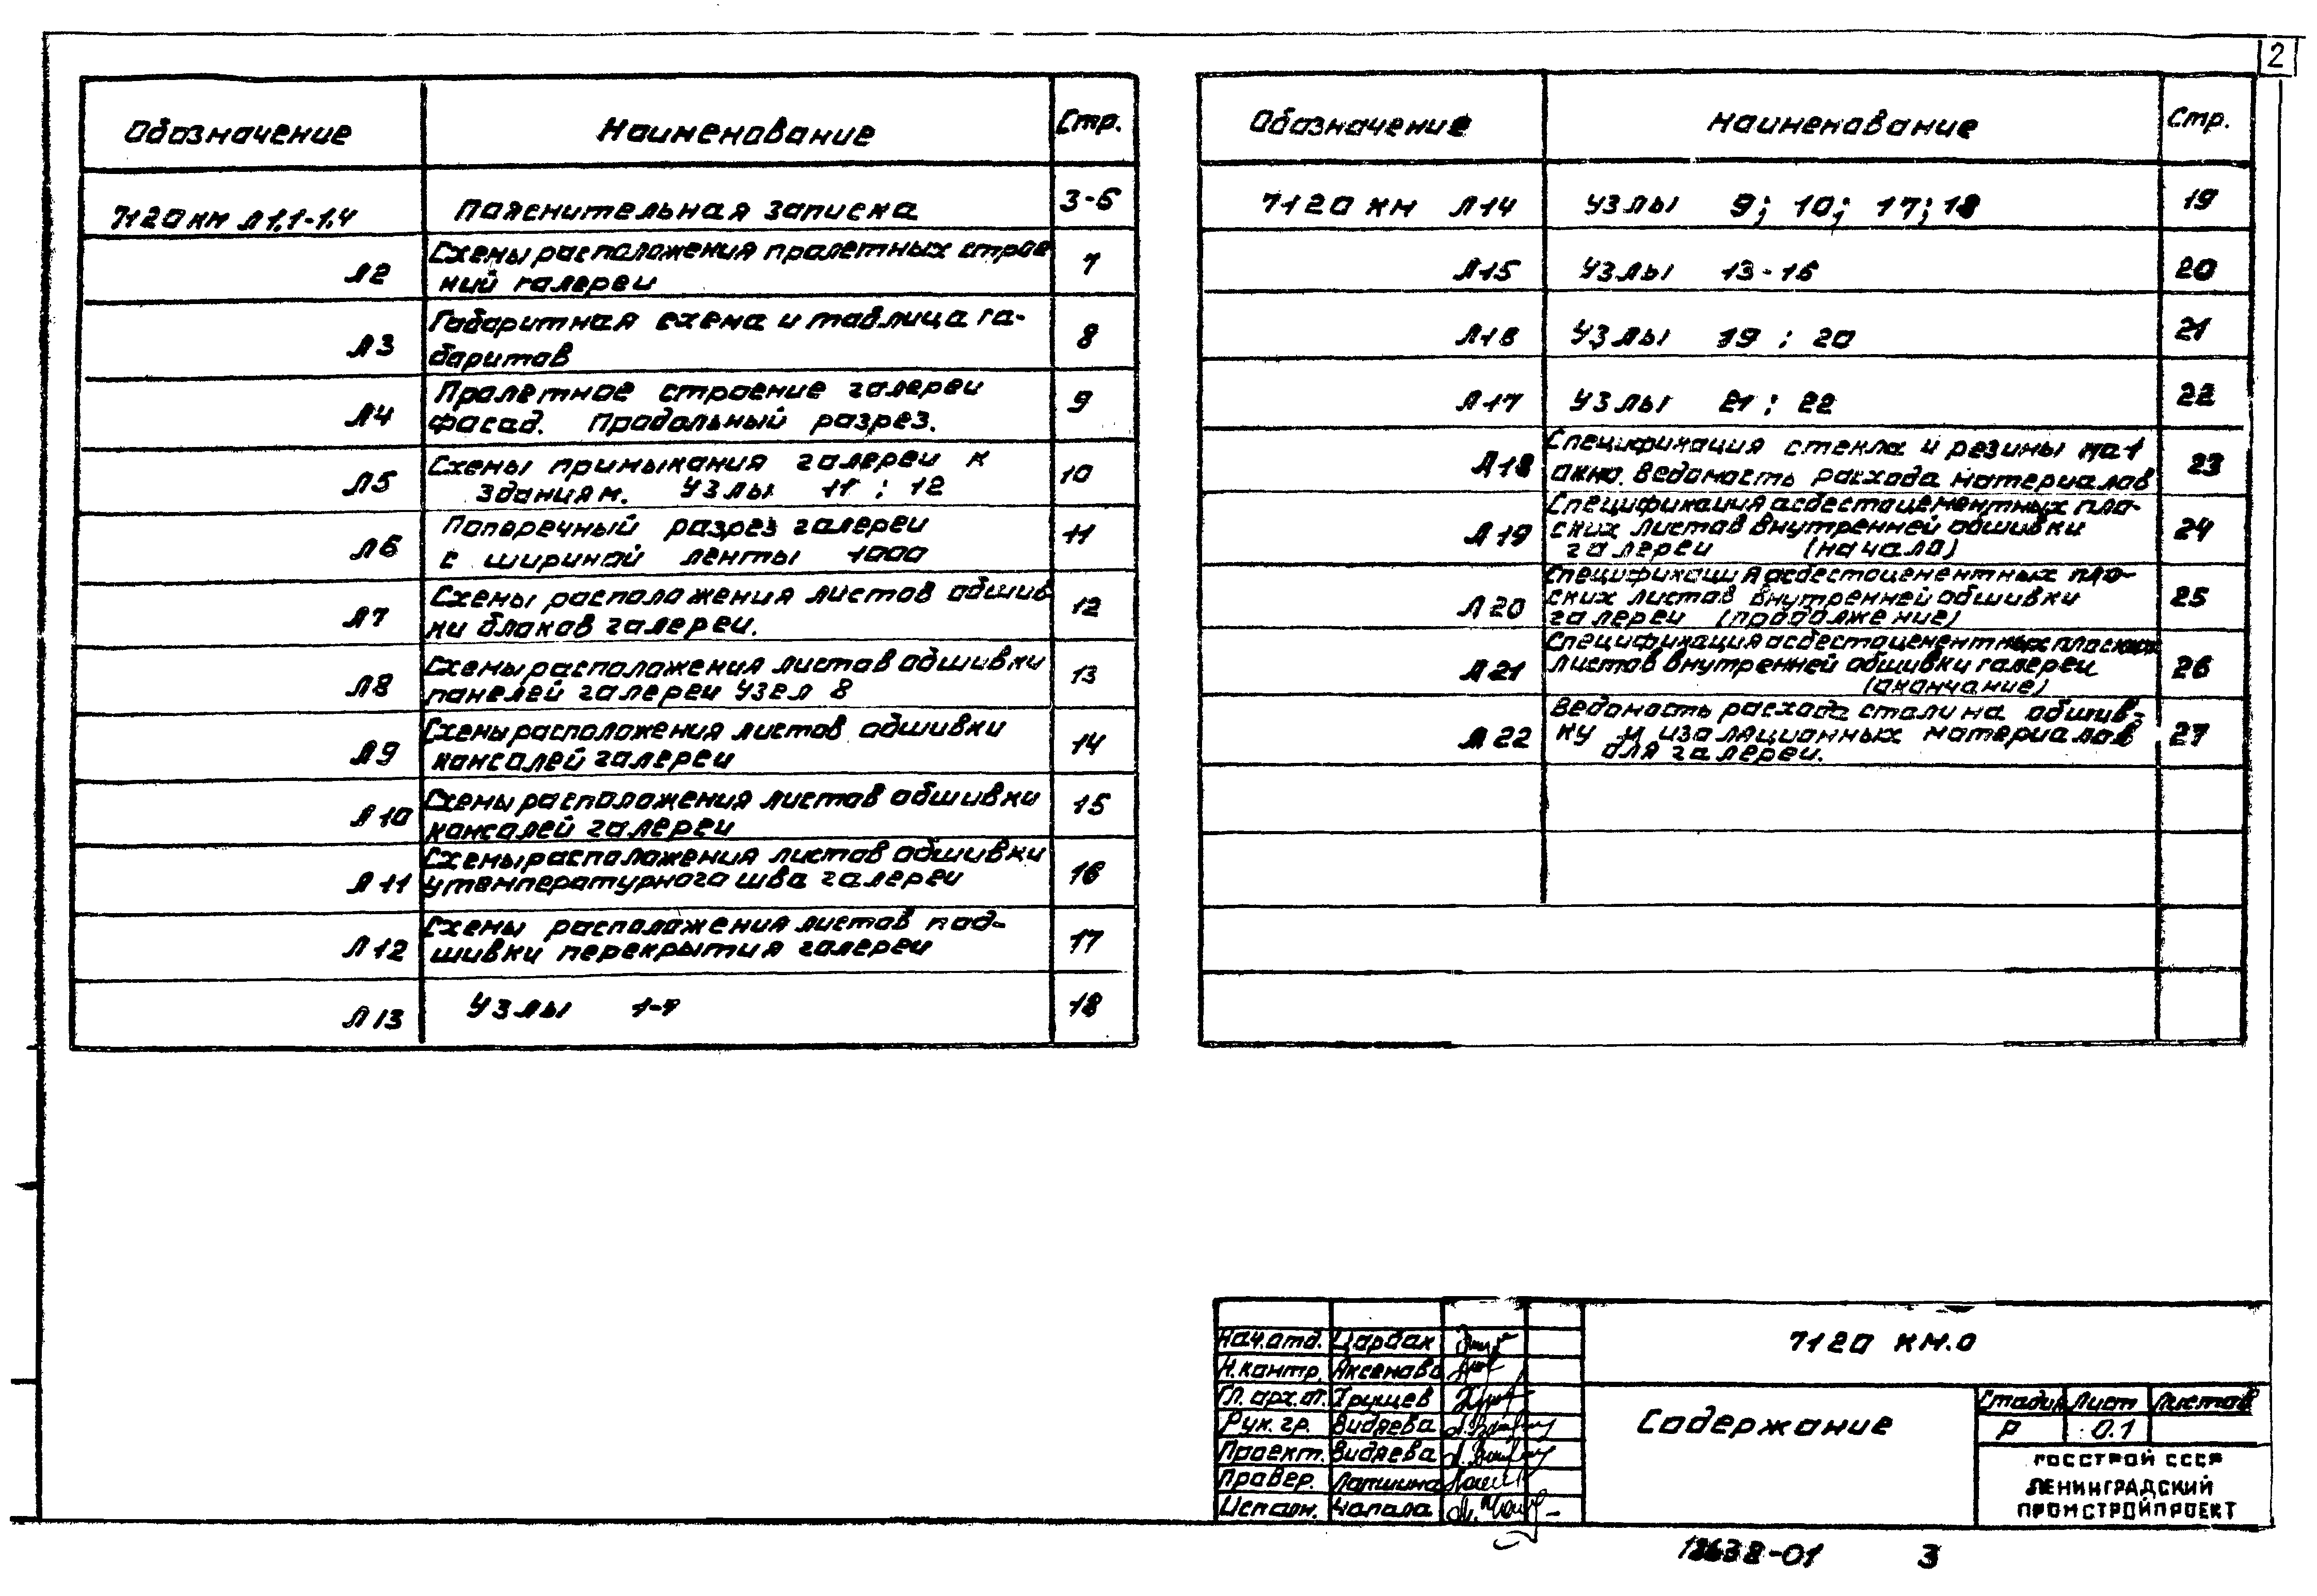 2
Обозначение Наименование Стр.
7120 КМ Л1.1-1.4 Пояснительная записка 3-6
Л2 Схемы расположения пролетных строе
ний галереи 7
Л3 Габаритная схема и таблица га-
баритов 8
Л4 Пролетное строение галереи
фасад. Продольный разрез. 9
Л5 Схемы примыкания галереи к
зданиям. Узлы 11; 12 10
Л6 Поперечный разрез галереи
с шириной ленты 1000 11
Л7 Схемы расположения листов обшив
ки блоков галереи. 12
Л8 Схемы расположения листов обшивки
панелей галереи Узел 8 13
Л9 Схемы расположения листов обшивки
консолей галереи 14
Л10 Схемы расположения листов обшивки
консолей галереи 15
Л11 Схемы расположения листов обшивки
у температурного шва галереи 16
Л12 Схемы расположения листов под-
шивки перекрытия галереи 17
Л13 Узлы 1-7 18
Обозначение Наименование Стр.
7120 КМ Л14 Узлы 9; 10; 17; 18 19
Л15 Узлы 13-16 20
Л16 Узлы 19; 20 21
Л17 Узлы 21; 22 22
Л18 Спецификация стекла и резины на 1
окно. Ведомость расхода материалов 23
Л19 Спецификация асбестоцементных пло-
ских листов внутренней обшивки
галереи (начало) 24
Л20 Спецификация асбестоцементных пло-
ских листов внутренней обшивки
галереи (продолжение) 25
Л21 Спецификация асбестоцементных плоских
листов внутренней обшивки галереи
(окончание) 26
Л22 Ведомость расхода стали на обшив-
ку и изоляционных материалов
для галереи. 27
Нач.отд. Царбак
Н.контр. Аксенова
Гл.арх.от. Хрущев
Рук.гр. Видяева
Проект. Видяева
Провер. Лапшина
Исполн. Чапала
7120 КМ.0
Содержание
Стадия Лист Листов
Р 0.1
ГОССТРОЙ СССР
ЛЕНИНГРАДСКИЙ
ПРОМСТРОЙПРОЕКТ
18638-01 3